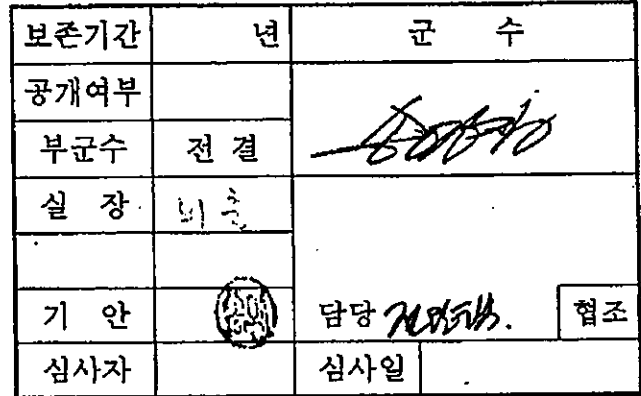 보존기간 년 군 수
공개여부
부군수 전 결
실 장
기 안 담당 협조
심사자 심사일